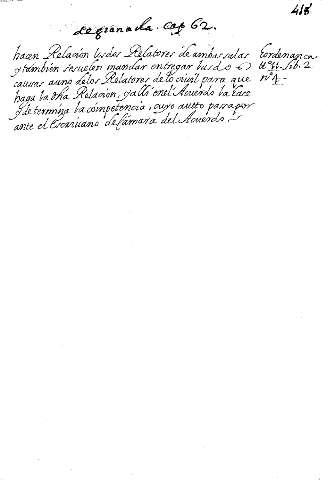 418
de granada. Cap 62.
hacen Relacion los dos Relatores de ambas salas
y tambien se suelen mandar entregar las dos
causas a uno de los Relatores de lo civil para que
haga la dha Relacion, y alli en el Acuerdo la hace
y determina la competencia, cuyo auto pasa por
ante el Escrivano de Camara del Acuerdo.
hordenanca
lib. 2